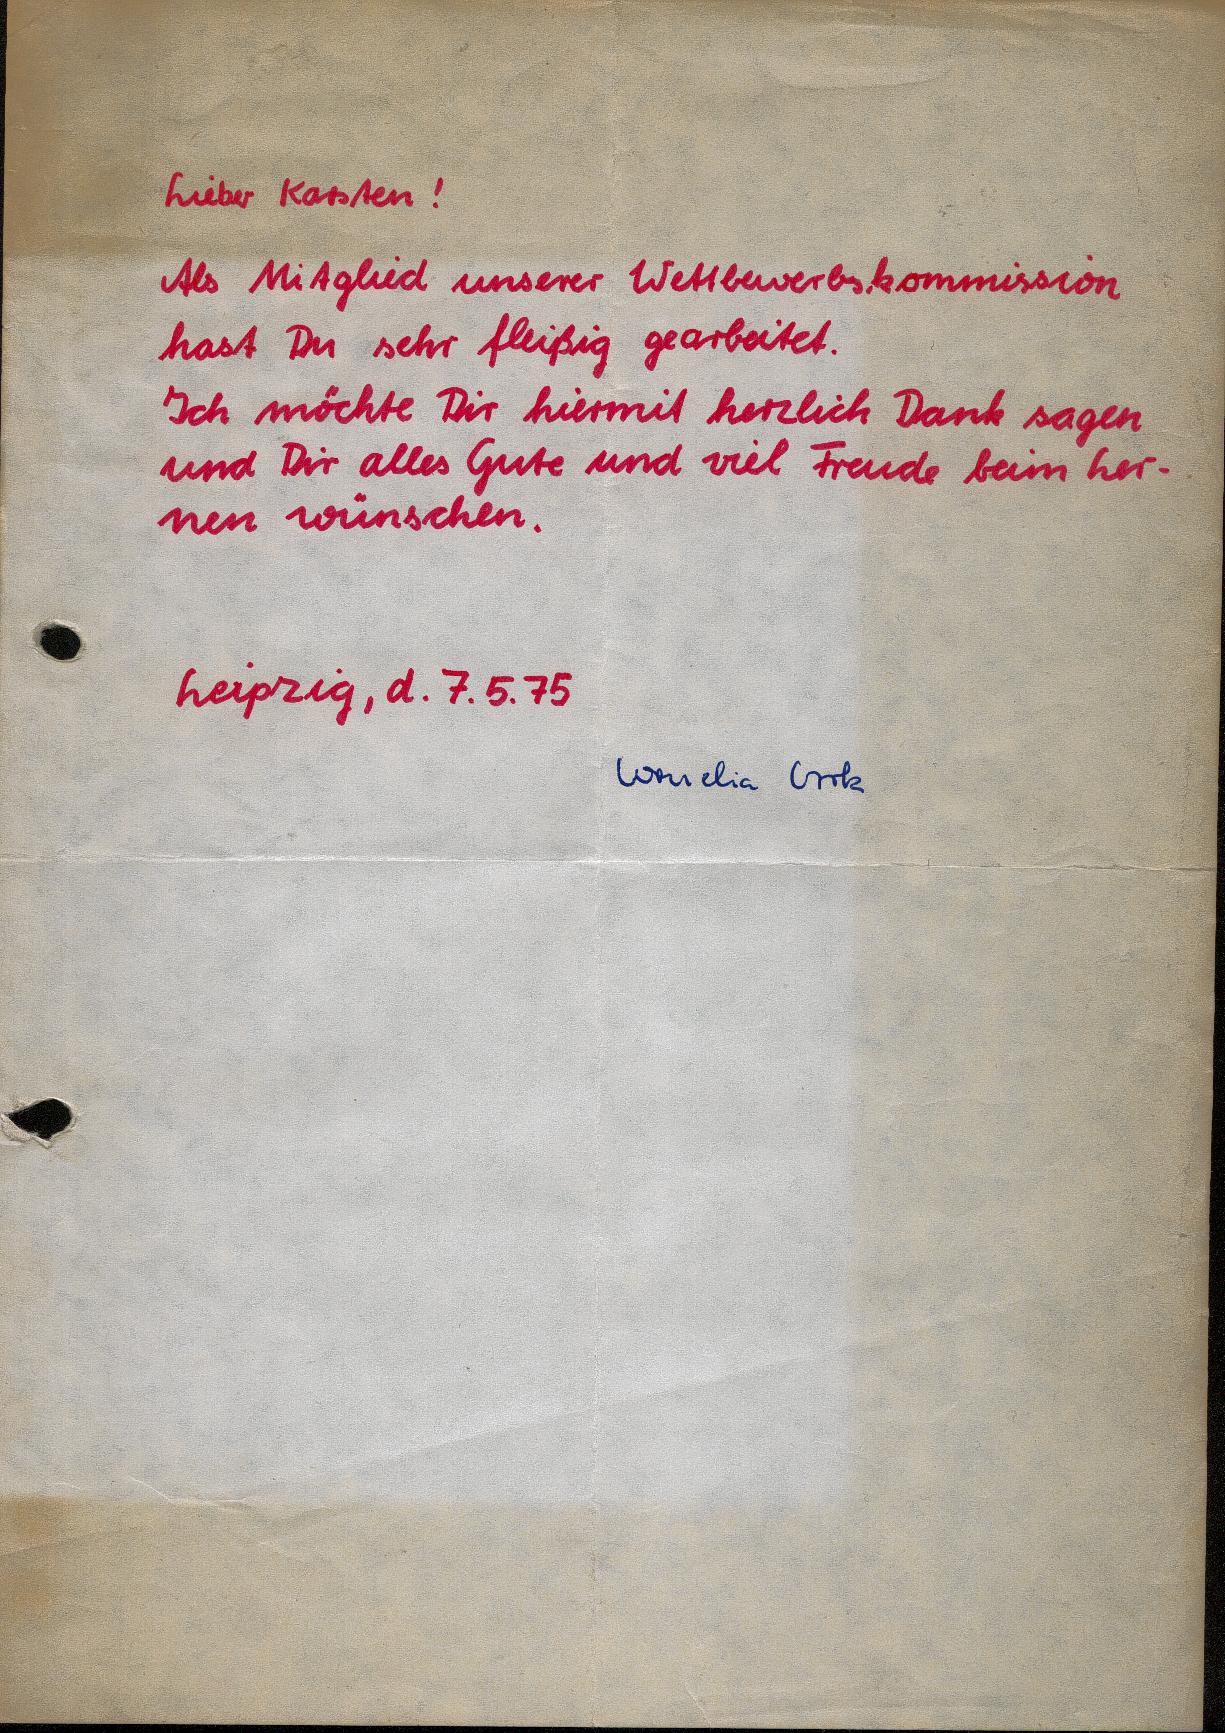 Lieber Karsten!
Als Mitglied unserer Wettbewerbskommission
hast Du sehr fleißig gearbeitet.
Ich möchte Dir hiermit herzlich Dank sagen
und Dir alles Gute und viel Freude beim Ler-
nen wünschen.
Leipzig, d. 7.5.75
Cornelia